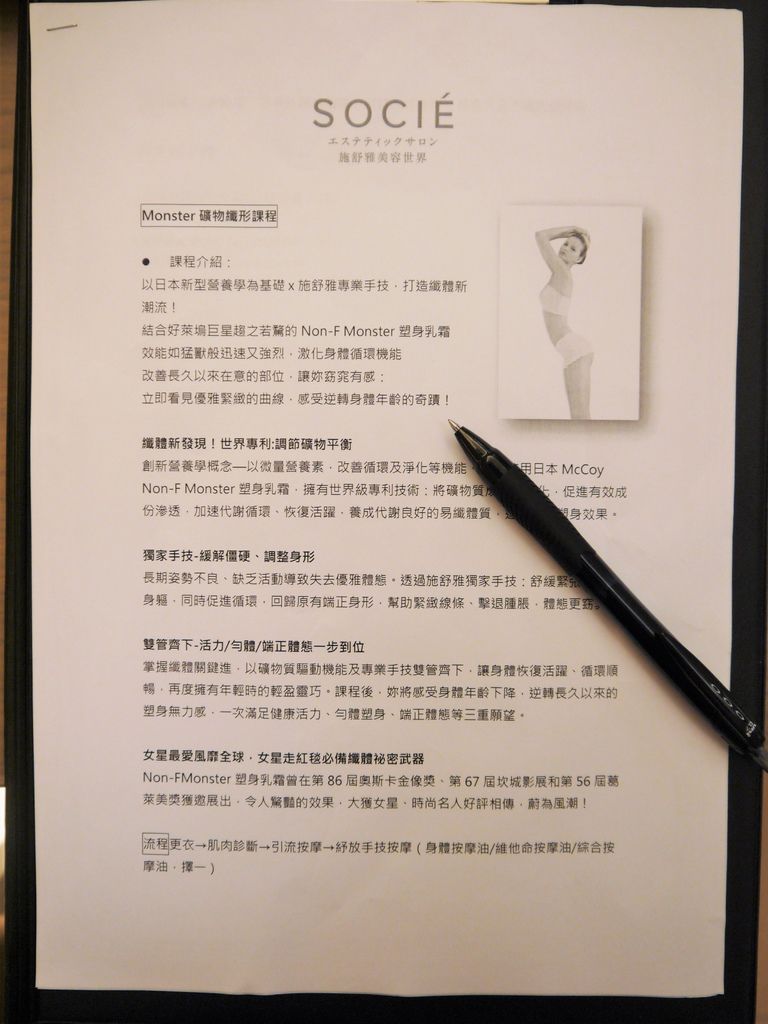 SOCIÉ
エステティックサロン
施舒雅美容世界
Monster 礦物纖形課程
● 課程介紹：
以日本新型營養學為基礎 x 施舒雅專業手技，打造纖體新
潮流！
結合好萊塢巨星趨之若鶩的 Non-F Monster 塑身乳霜
效能如猛獸般迅速又強烈，激化身體循環機能
改善長久以來在意的部位，讓妳窈窕有感：
立即看見優雅緊緻的曲線，感受逆轉身體年齡的奇蹟！
纖體新發現！世界專利:調節礦物平衡
創新營養學概念—以微量營養素，改善循環及淨化等機能，用日本 McCoy
Non-F Monster 塑身乳霜，擁有世界級專利技術：將礦物質化，促進有效成
份滲透，加速代謝循環、恢復活躍，養成代謝良好的易纖體質，塑身效果。
獨家手技-緩解僵硬、調整身形
長期姿勢不良、缺乏活動導致失去優雅體態。透過施舒雅獨家手技：舒緩緊
身軀，同時促進循環，回歸原有端正身形，幫助緊緻線條、擊退腫脹，體態更窈
雙管齊下-活力/勻體/端正體態一步到位
掌握纖體關鍵進，以礦物質驅動機能及專業手技雙管齊下，讓身體恢復活躍、循環順
暢，再度擁有年輕時的輕盈靈巧。課程後，妳將感受身體年齡下降，逆轉長久以來的
塑身無力感，一次滿足健康活力、勻體塑身、端正體態等三重願望。
女星最愛風靡全球，女星走紅毯必備纖體祕密武器
Non-FMonster 塑身乳霜曾在第 86 屆奧斯卡金像獎、第 67 屆坎城影展和第 56 屆葛
萊美獎獲邀展出，令人驚豔的效果，大獲女星、時尚名人好評相傳，蔚為風潮！
流程更衣→肌肉診斷→引流按摩→紓放手技按摩（身體按摩油/維他命按摩油/綜合按
摩油，擇一）